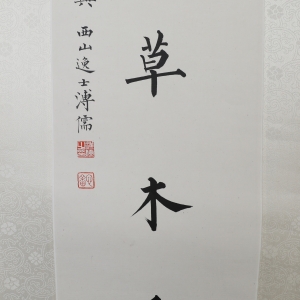 草木
西山逸士溥儒